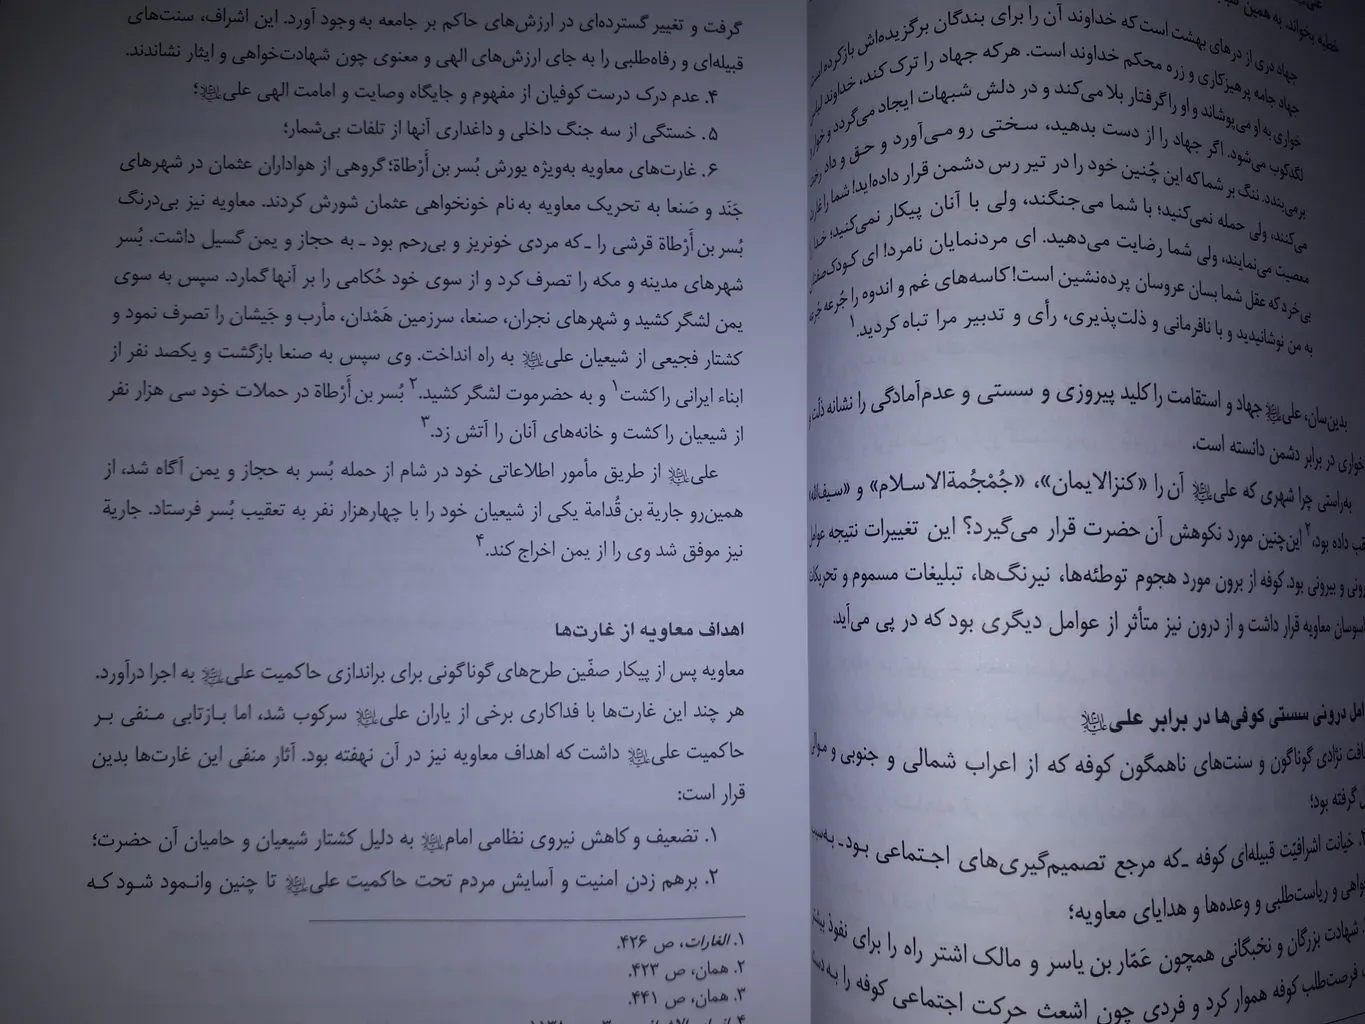 خطبه بخواند، به همین
جهاد دری از درهای بهشت است که خداوند آن را برای بندگان برگزیده‌اش بازکرده است
جهاد جامه پرهیزکاری و زره محکم خداوند است. هرکه جهاد را ترک کند، خداوند لباس
خواری به او می‌پوشاند و او را گرفتار بلا می‌کند و در دلش شبهات ایجاد می‌گردد و خوار و
لگدکوب می‌شود. اگر جهاد را از دست بدهید، سختی رو می‌آورد و حق و داد رخت
برمی‌بندد. ننگ بر شما که این چُنین خود را در تیر رس دشمن قرار داده‌اید! شما را غارت
می‌کنند، ولی حمله نمی‌کنید؛ با شما می‌جنگند، ولی با آنان پیکار نمی‌کنید؛ خدا
معصیت می‌نمایند، ولی شما رضایت می‌دهید. ای مردنمایان نامرد! ای کودک‌صفتان
بی‌خرد که عقل شما بسان عروسان پرده‌نشین است! کاسه‌های غم و اندوه را جُرعه جُرعه
به من نوشانیدید و با نافرمانی و ذلت‌پذیری، رأی و تدبیر مرا تباه کردید.۱
بدین‌سان، علی؏ جهاد و استقامت را کلید پیروزی و سستی و عدم‌آمادگی را نشانه ذلّت و
خواری در برابر دشمن دانسته است.
به‌راستی چرا شهری که علی؏ آن را «کنزالایمان»، «جُمْجُمةالاسلام» و «سیف‌الله»
داده بود،۲ این‌چنین مورد نکوهش آن حضرت قرار می‌گیرد؟ این تغییرات نتیجه عوامل
و بیرونی بود. کوفه از برون مورد هجوم توطئه‌ها، نیرنگ‌ها، تبلیغات مسموم و تحریکات
معاویه قرار داشت و از درون نیز متأثر از عوامل دیگری بود که در پی می‌آید.
درونی سستی کوفی‌ها در برابر علی؏
نژادی گوناگون و سنت‌های ناهمگون کوفه که از اعراب شمالی و جنوبی و موالی
گرفته بود؛
۲. خیانت اشرافیّت قبیله‌ای کوفه ـ که مرجع تصمیم‌گیری‌های اجتماعی بود ـ به‌سبب
و ریاست‌طلبی و وعده‌ها و هدایای معاویه؛
شهادت بزرگان و نخبگانی همچون عَمّار بن یاسر و مالک اشتر راه را برای نفوذ بیشتر
فرصت‌طلب کوفه هموار کرد و فردی چون اشعث حرکت اجتماعی کوفه را به دست
گرفت و تغییر گسترده‌ای در ارزش‌های حاکم بر جامعه به وجود آورد. این اشراف، سنت‌های
قبیله‌ای و رفاه‌طلبی را به جای ارزش‌های الهی و معنوی چون شهادت‌خواهی و ایثار نشاندند.
۴. عدم درک درست کوفیان از مفهوم و جایگاه وصایت و امامت الهی علی؏؛
۵. خستگی از سه جنگ داخلی و داغداری آنها از تلفات بی‌شمار؛
۶. غارت‌های معاویه به‌ویژه یورش بُسر بن أَرْطاة؛ گروهی از هواداران عثمان در شهرهای
جَنَد و صَنعا به تحریک معاویه به نام خونخواهی عثمان شورش کردند. معاویه نیز بی‌درنگ
بُسر بن أَرْطاة قرشی را ـ که مردی خونریز و بی‌رحم بود ـ به حجاز و یمن گسیل داشت. بُسر
شهرهای مدینه و مکه را تصرف کرد و از سوی خود حُکامی را بر آنها گمارد. سپس به سوی
یمن لشگر کشید و شهرهای نجران، صنعا، سرزمین هَمْدان، مأرب و جَیشان را تصرف نمود و
کشتار فجیعی از شیعیان علی؏ به راه انداخت. وی سپس به صنعا بازگشت و یکصد نفر از
ابناء ایرانی را کشت۱ و به حضرموت لشگر کشید.۲ بُسر بن أَرْطاة در حملات خود سی هزار نفر
از شیعیان را کشت و خانه‌های آنان را آتش زد.۳
علی؏ از طریق مأمور اطلاعاتی خود در شام از حمله بُسر به حجاز و یمن آگاه شد، از
همین‌رو جاریة بن قُدامة یکی از شیعیان خود را با چهارهزار نفر به تعقیب بُسر فرستاد. جاریة
نیز موفق شد وی را از یمن اخراج کند.۴
اهداف معاویه از غارت‌ها
معاویه پس از پیکار صفّین طرح‌های گوناگونی برای براندازی حاکمیت علی؏ به اجرا درآورد.
هر چند این غارت‌ها با فداکاری برخی از یاران علی؏ سرکوب شد، اما بازتابی منفی بر
حاکمیت علی؏ داشت که اهداف معاویه نیز در آن نهفته بود. آثار منفی این غارت‌ها بدین
قرار است:
۱. تضعیف و کاهش نیروی نظامی امام؏ به دلیل کشتار شیعیان و حامیان آن حضرت؛
۲. برهم زدن امنیت و آسایش مردم تحت حاکمیت علی؏ تا چنین وانمود شود که
۱. الغارات، ص ۴۲۶.
۲. همان، ص ۴۲۳.
۳. همان، ص ۴۴۱.